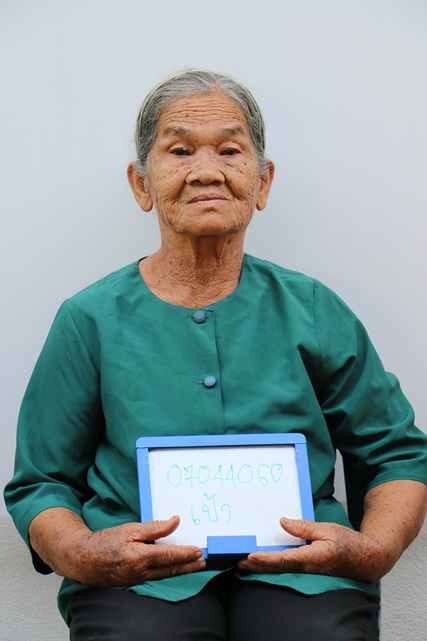 07044060
เป้า